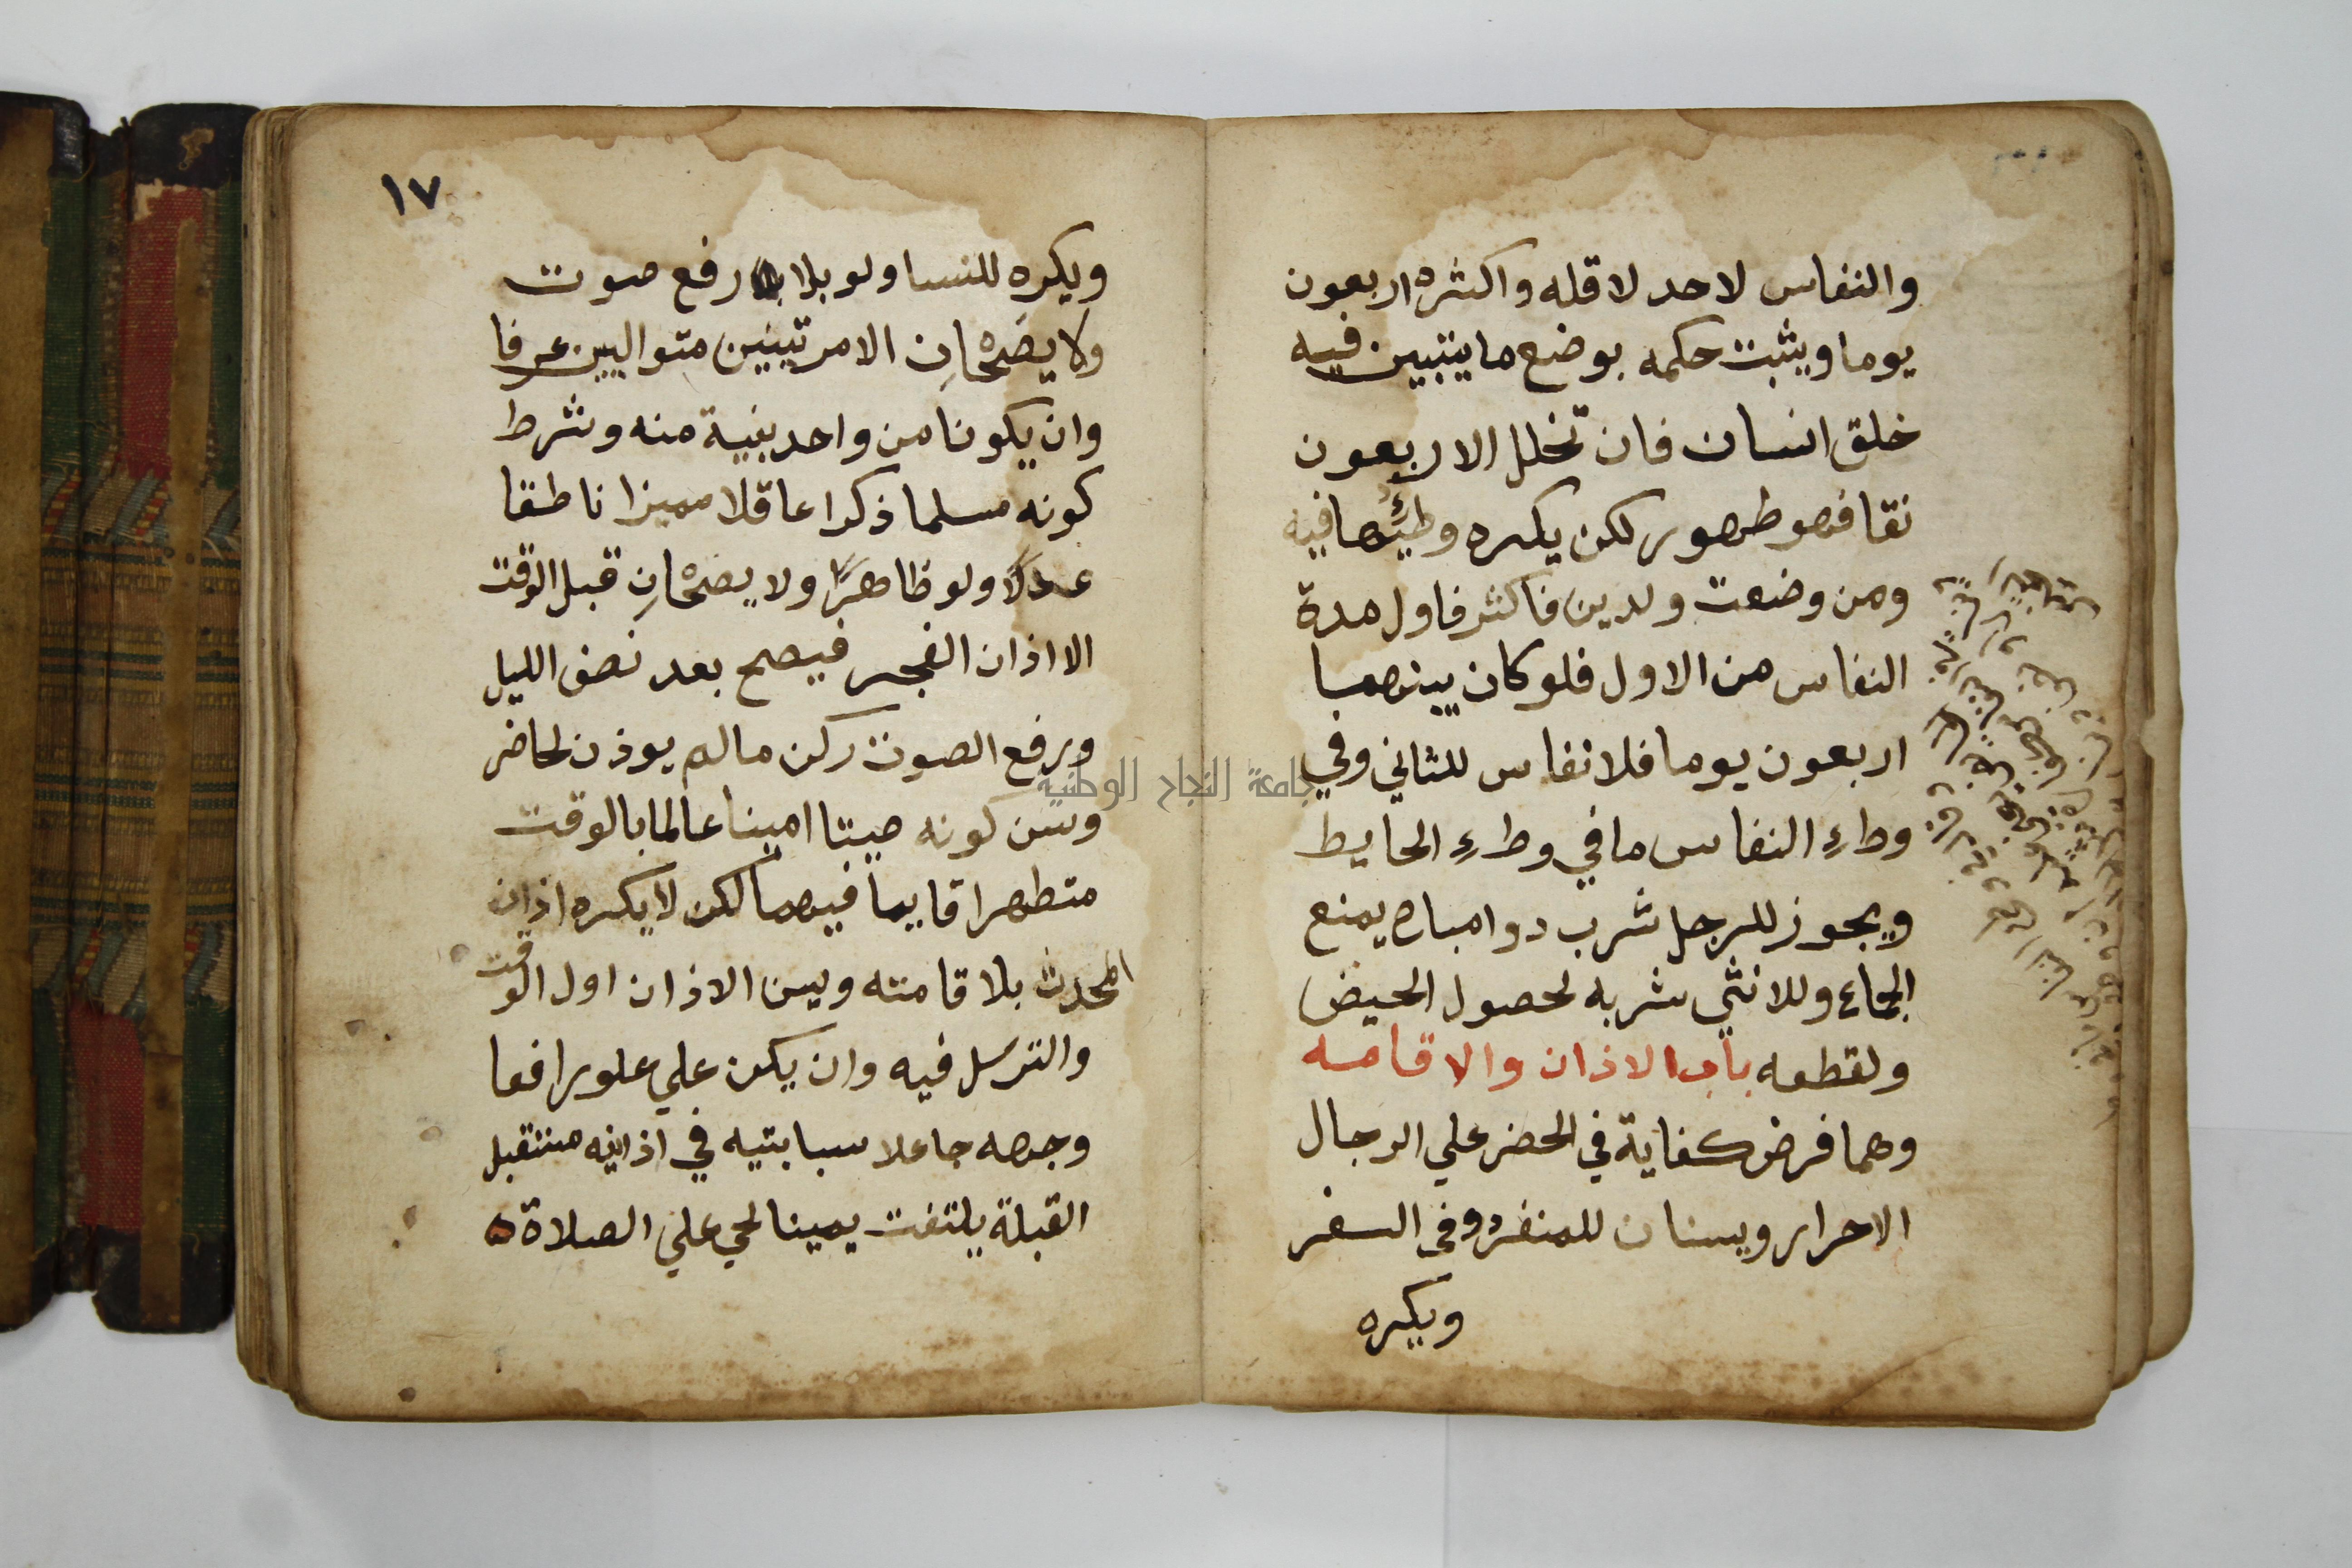 والنفاس لا حد لاقله واكثره اربعون
يوما ويثبت حكمه بوضع ما يتبين فيه
خلق انسان فان تخلل الاربعون
نقا فهو طهور لكن يكره وطيؤها فيه
ومن وضعت ولدين فاكثر فاول مدة
النفاس من الاول فلو كان بينهما
اربعون يوما فلا نفاس للثاني وفي
وطاءِ النفاس ما في وطاءِ الحايط
ويجوز للرجل شرب دوا مباح يمنع
الجماع وللانثي شربه لحصول الحيض
ولقطعه باب الاذان والاقامه
وهما فرض كفاية في الحضر علي الرجال
الاحرار ويسنان للمنفرد وفي السفر
ويكره
١٧
ويكره للنسا ولو بلا رفع صوت
ولا يصحانِ الا مرتبين متواليين عرفا
وان يكونا من واحد بنية منه وشرط
كونه مسلما ذكرا عاقلا مميزا ناطقا
عدلاً ولو ظاهرًا ولا يصحانِ قبل الوقت
الا اذان الفجر فيصح بعد نصف الليل
ورفع الصوت ركن ما لم يوذن لحاضر
وسن كونه صيتا امينا عالما بالوقت
متطهرا قايما فيهما لكن لا يكره اذان
المحدث بلا قامته ويسن الاذان اول الوقت
والترسل فيه وان يكون علي علو رافعا
وجهه جاعلا سبابتيه في اذانيه مستقبل
القبلة يلتفت يمينا لحي علي الصلاة
جامعة النجاح الوطنية